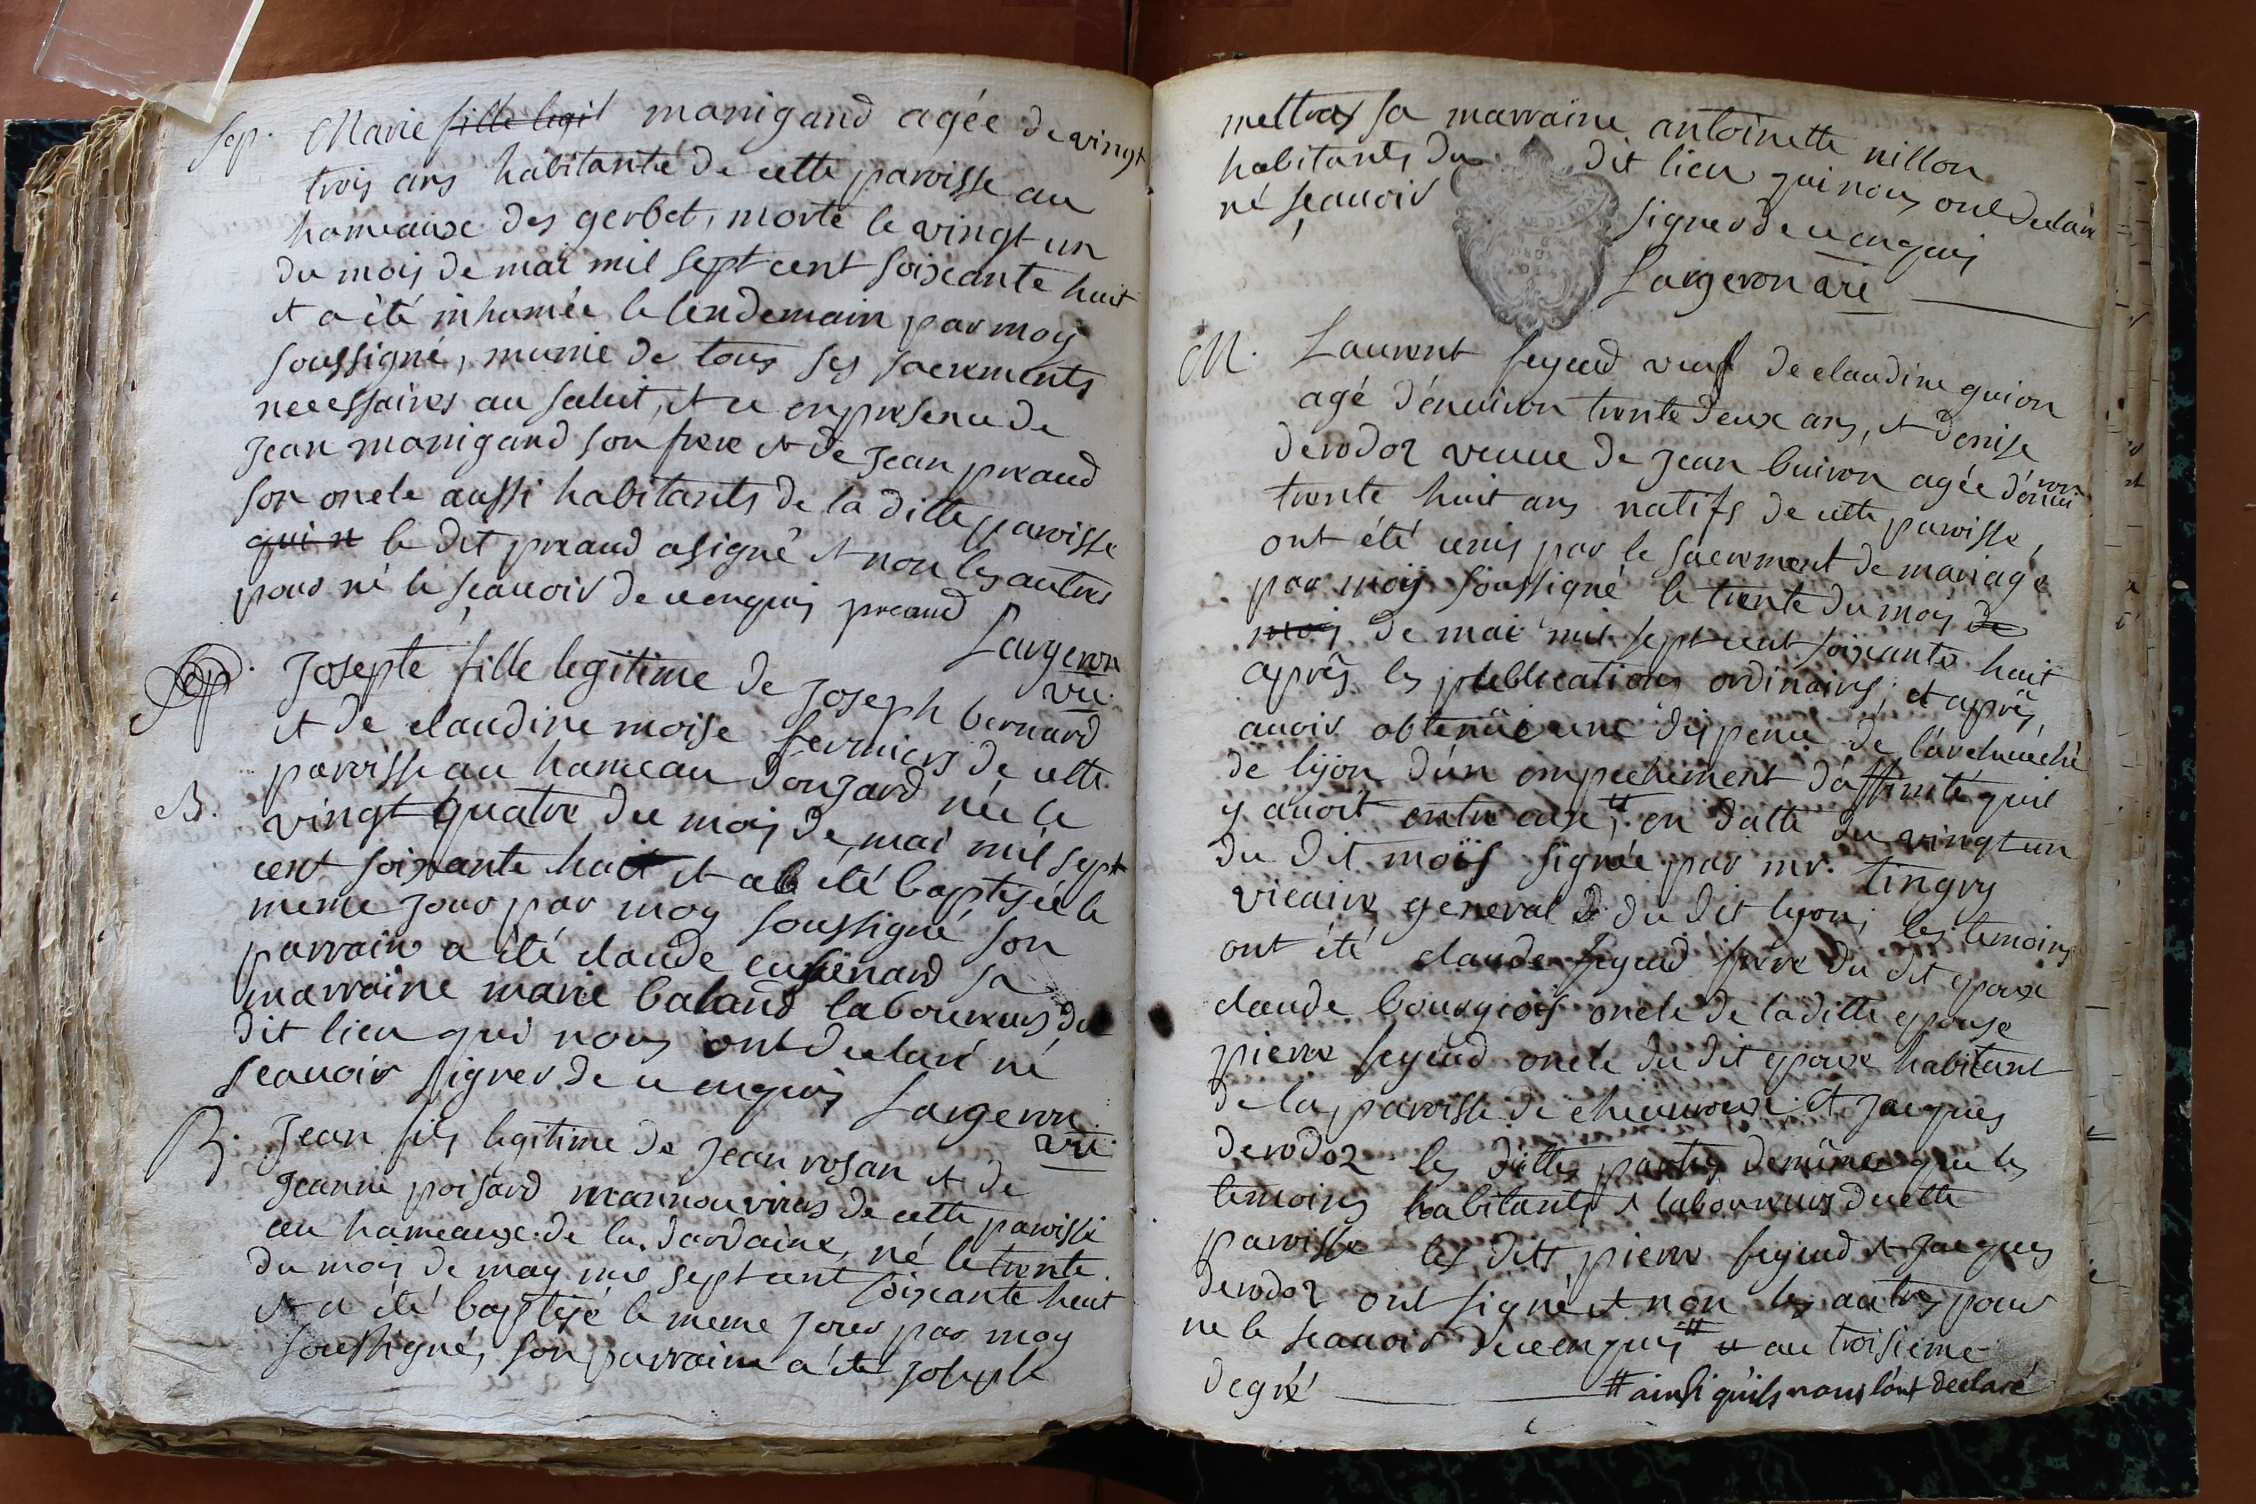 Sep. Marie fille legit manigand agée de vingt
trois ans habitante de cette paroisse au
hameaux des gerbet, morte le vingt un
du mois de mai mil sept cent soixante huit
et a été inhumée le lendemain par moy
soussigné, munie de tous ses sacrements
necessaires au salut, et ce en presence de
Jean manigand son frere et de Jean preaud
son oncle aussi habitants de la ditte paroisse
qui n le dit preaud a signé et non les autres
pour né le scavoir de ce enquis preaud
Largeron
vic.
Josepte fille legitime de Joseph bernard
et de claudine moise fermiers de cette
paroisse au hameau donjard née le
B. vingt quatre du mois de mai mil sept
cent soixante huit et a été baptisée le
meme jour par moy soussigné son
parrain a été claude sa
marraine marie baland laboureurs du
dit lieu qui nous ont declaré né
scavoir signer de ce enquis Largeron
vic
B. Jean fils legitime de Jean rosan et de
Jeanne poisard mannouvriers de cette paroisse
au hameaux de la dardaine, né le trente
du mois de may mil sept cent soixante huit
et a été baptisé le meme jour par moy
soussigné, son parrain a été joseph
mettrax sa marraine antoinette nillon
habitants du dit lieu qui nous ont declaré
né scavoir signer de ce enquis
Largeron vic
M. Laurent feyeud veuf de claudine guion
agé d'environ trente deux ans, et denise
derodoz veuve de Jean buiron agée d'environ
trente huit ans natifs de cette paroisse,
ont été unis par le sacrement de mariage
par moy soussigné le trente du mois de
mois de mai mil sept cent soixante huit
après les publications ordinaires, et après,
avoir obtenüe une dispence de l'archevéché
de lyon d'un empechement d'affinité quil
y avoit entre eux, en datte du vingt un
du dit moïs signée par mr. tingry
vicaire general du dit lyon, les temoins
ont été claude feyeud frere du dit epoux
claude bourgeois oncle de la ditte epouse
pierre feyeud oncle du dit epoux habitant
de la paroisse de chevuroux et Jacques
derodoz les dittes parties deméme que les
temoins habitants et laboureurs de cette
paroisse les dits pierre feyeud et Jacques
derodoz ont signé et non les autres pour
ne le scavoir de ce enquis # et au troisieme
degré # ainsi qu'ils nous l'ont declaré